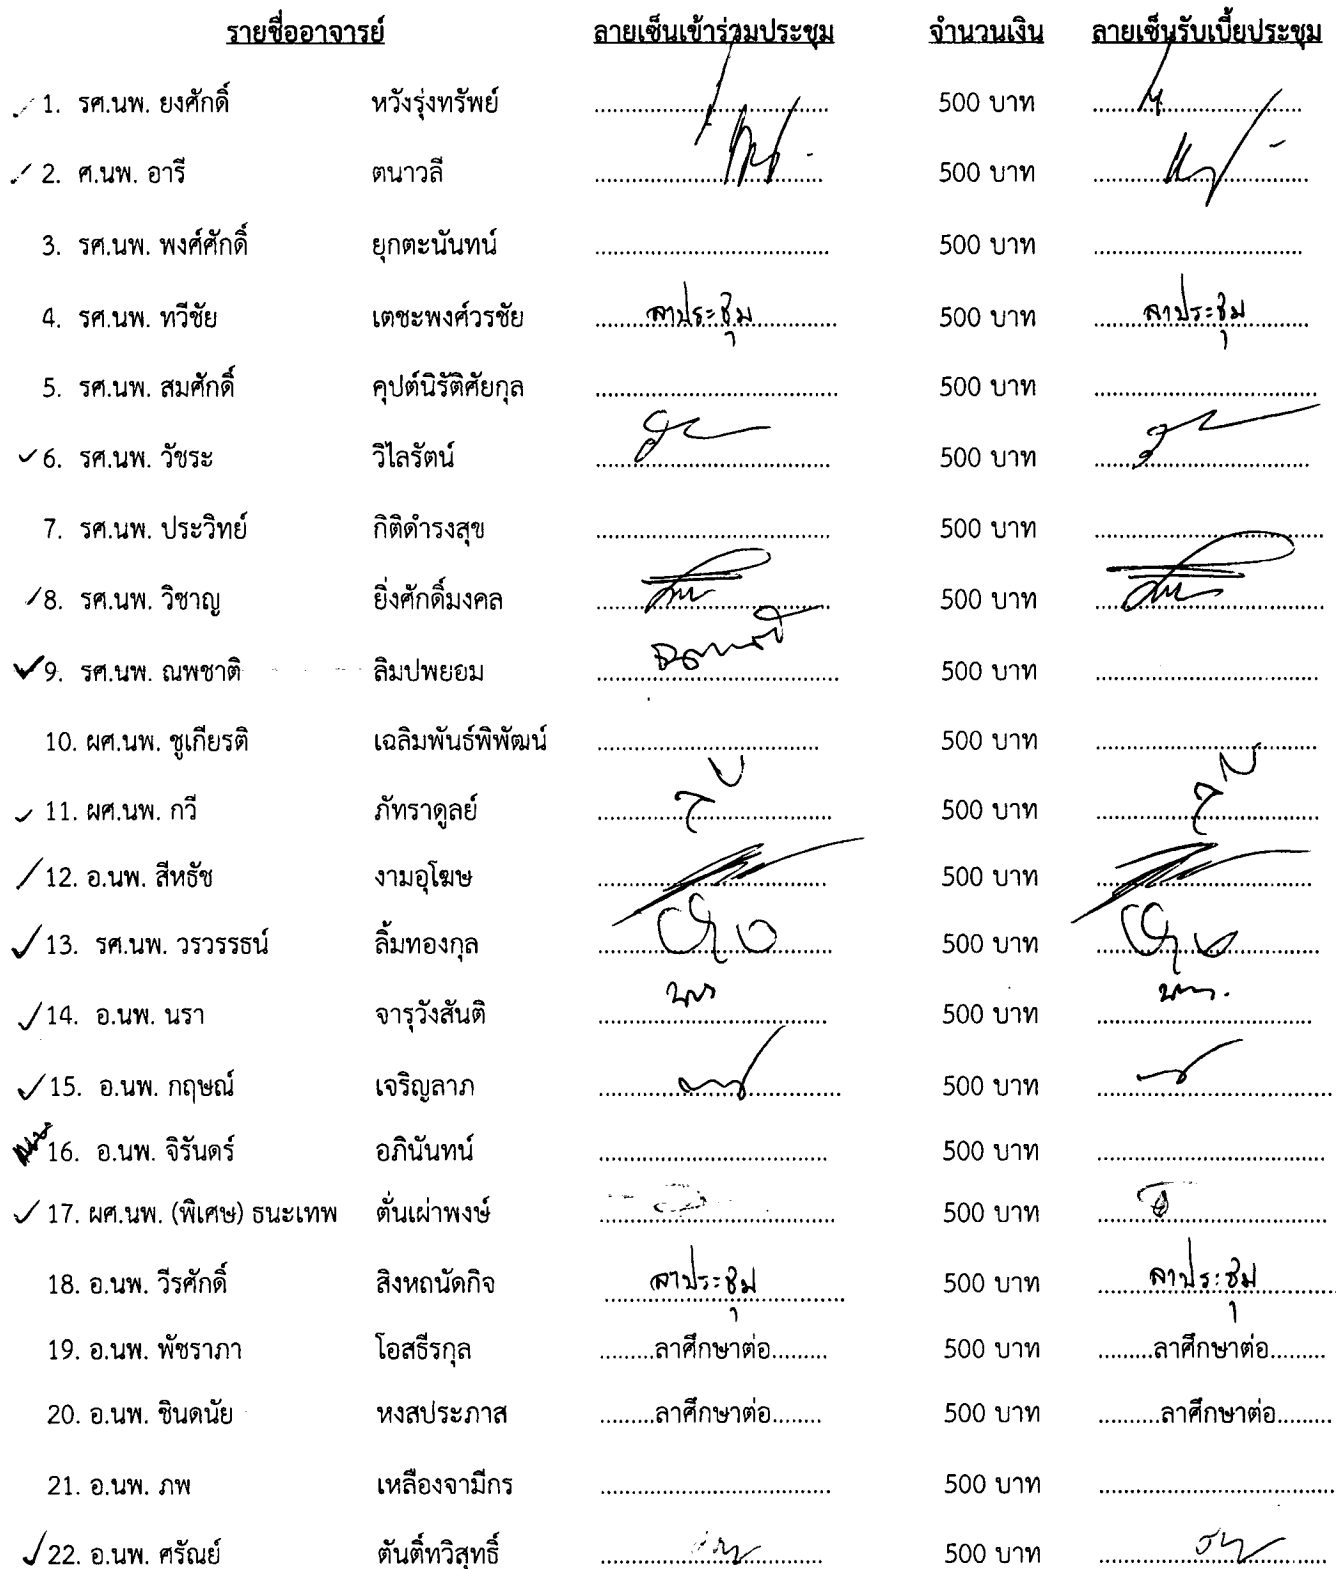 รายชื่ออาจารย์ ลายเซ็นเข้าร่วมประชุม จำนวนเงิน ลายเซ็นรับเบี้ยประชุม
1. รศ.นพ. ยงศักดิ์ หวังรุ่งทรัพย์ 500 บาท
2. ศ.นพ. อารี ตนาวลี 500 บาท
3. รศ.นพ. พงศ์ศักดิ์ ยุกตะนันทน์ 500 บาท
4. รศ.นพ. ทวีชัย เตชะพงศ์วรชัย ลาประชุม 500 บาท ลาประชุม
5. รศ.นพ. สมศักดิ์ คุปต์นิรัติศัยกุล 500 บาท
6. รศ.นพ. วัชระ วิไลรัตน์ 500 บาท
7. รศ.นพ. ประวิทย์ กิติดำรงสุข 500 บาท
8. รศ.นพ. วิชาญ ยิ่งศักดิ์มงคล 500 บาท
9. รศ.นพ. ณพชาติ ลิมปพยอม 500 บาท
10. ผศ.นพ. ชูเกียรติ เฉลิมพันธ์พิพัฒน์ 500 บาท
11. ผศ.นพ. กวี ภัทราดูลย์ 500 บาท
12. อ.นพ. สีหธัช งามอุโฆษ 500 บาท
13. รศ.นพ. วรวรรธน์ ลิ้มทองกุล 500 บาท
14. อ.นพ. นรา จารุวังสันติ นรา 500 บาท นรา
15. อ.นพ. กฤษณ์ เจริญลาภ 500 บาท
16. อ.นพ. จิรันดร์ อภินันทน์ 500 บาท
17. ผศ.นพ. (พิเศษ) ธนะเทพ ตั่นเผ่าพงษ์ 500 บาท
18. อ.นพ. วีรศักดิ์ สิงหถนัดกิจ ลาประชุม 500 บาท ลาประชุม
19. อ.นพ. พัชราภา โอสธีรกุล ลาศึกษาต่อ 500 บาท ลาศึกษาต่อ
20. อ.นพ. ชินดนัย หงสประภาส ลาศึกษาต่อ 500 บาท ลาศึกษาต่อ
21. อ.นพ. ภพ เหลืองจามีกร 500 บาท
22. อ.นพ. ศรัณย์ ตันติ์ทวิสุทธิ์ 500 บาท